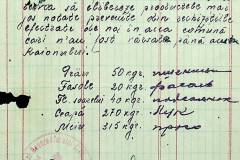 să elibereze productele mai
jos notate provenite din rechizițiile
efectuate de noi în acea comună
cari n'au fost ridicate până acum
Raionului.
Grâu 50 kgr. пшеницы
Fasole 20 kgr. фасоль
Fl. soarelui 40 kgr.
Ceapă 270 kgr. лук
Meiu 315 kgr. просо